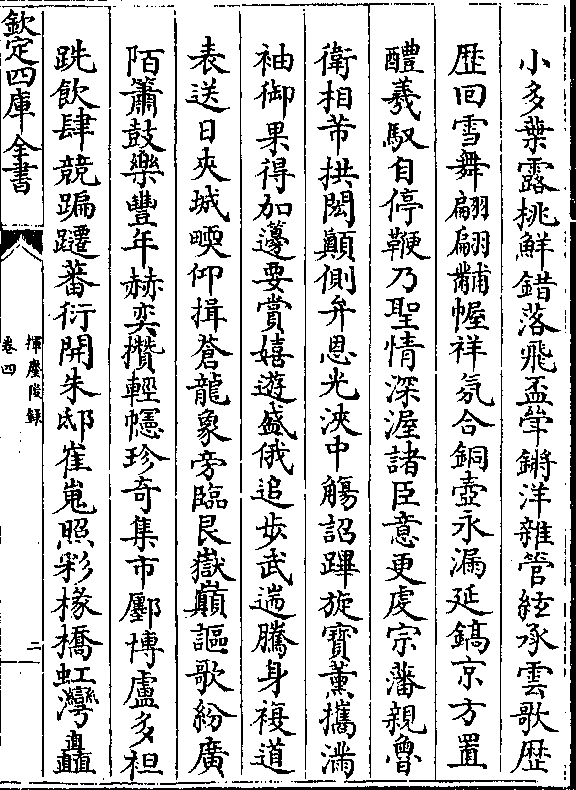 小多葉露挑鮮錯落飛盃斝鏘洋雜管絃承雲歌歴
歴回雪舞翩翩黼幄祥氛合銅壺永漏延鎬京方置
醴羲馭自停鞭乃聖情深渥諸臣意更䖍宗藩親魯
衛相芾拱閎顛側弁恩光浹中觴詔蹕旋寶薰攜滿
袖御果得加籩要賞嬉遊盛俄追步武遄騰身複道
表送日夾城暶仰揖蒼龍象旁臨艮嶽巔謳歌紛廣
陌簫鼓樂豐年赫奕攢輕幰珍奇集市鄽博盧多袒
跣飲肆競蹁躚蕃衍開朱邸崔嵬照彩椽橋虹灣
欽定四庫全書
揮麈後錄
卷四
二